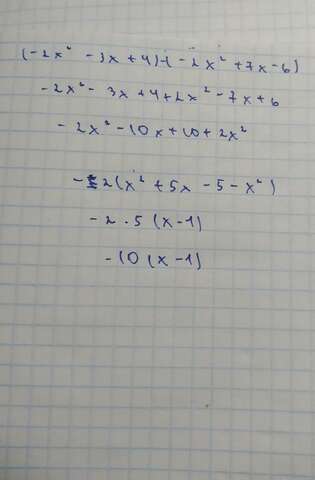 (-2x² - 3x + 4) - (-2x² + 7x - 6)
-2x² - 3x + 4 + 2x² - 7x + 6
-2x² - 10x + 10 + 2x²
-2(x² + 5x - 5 - x²)
-2 · 5 (x - 1)
-10 (x - 1)